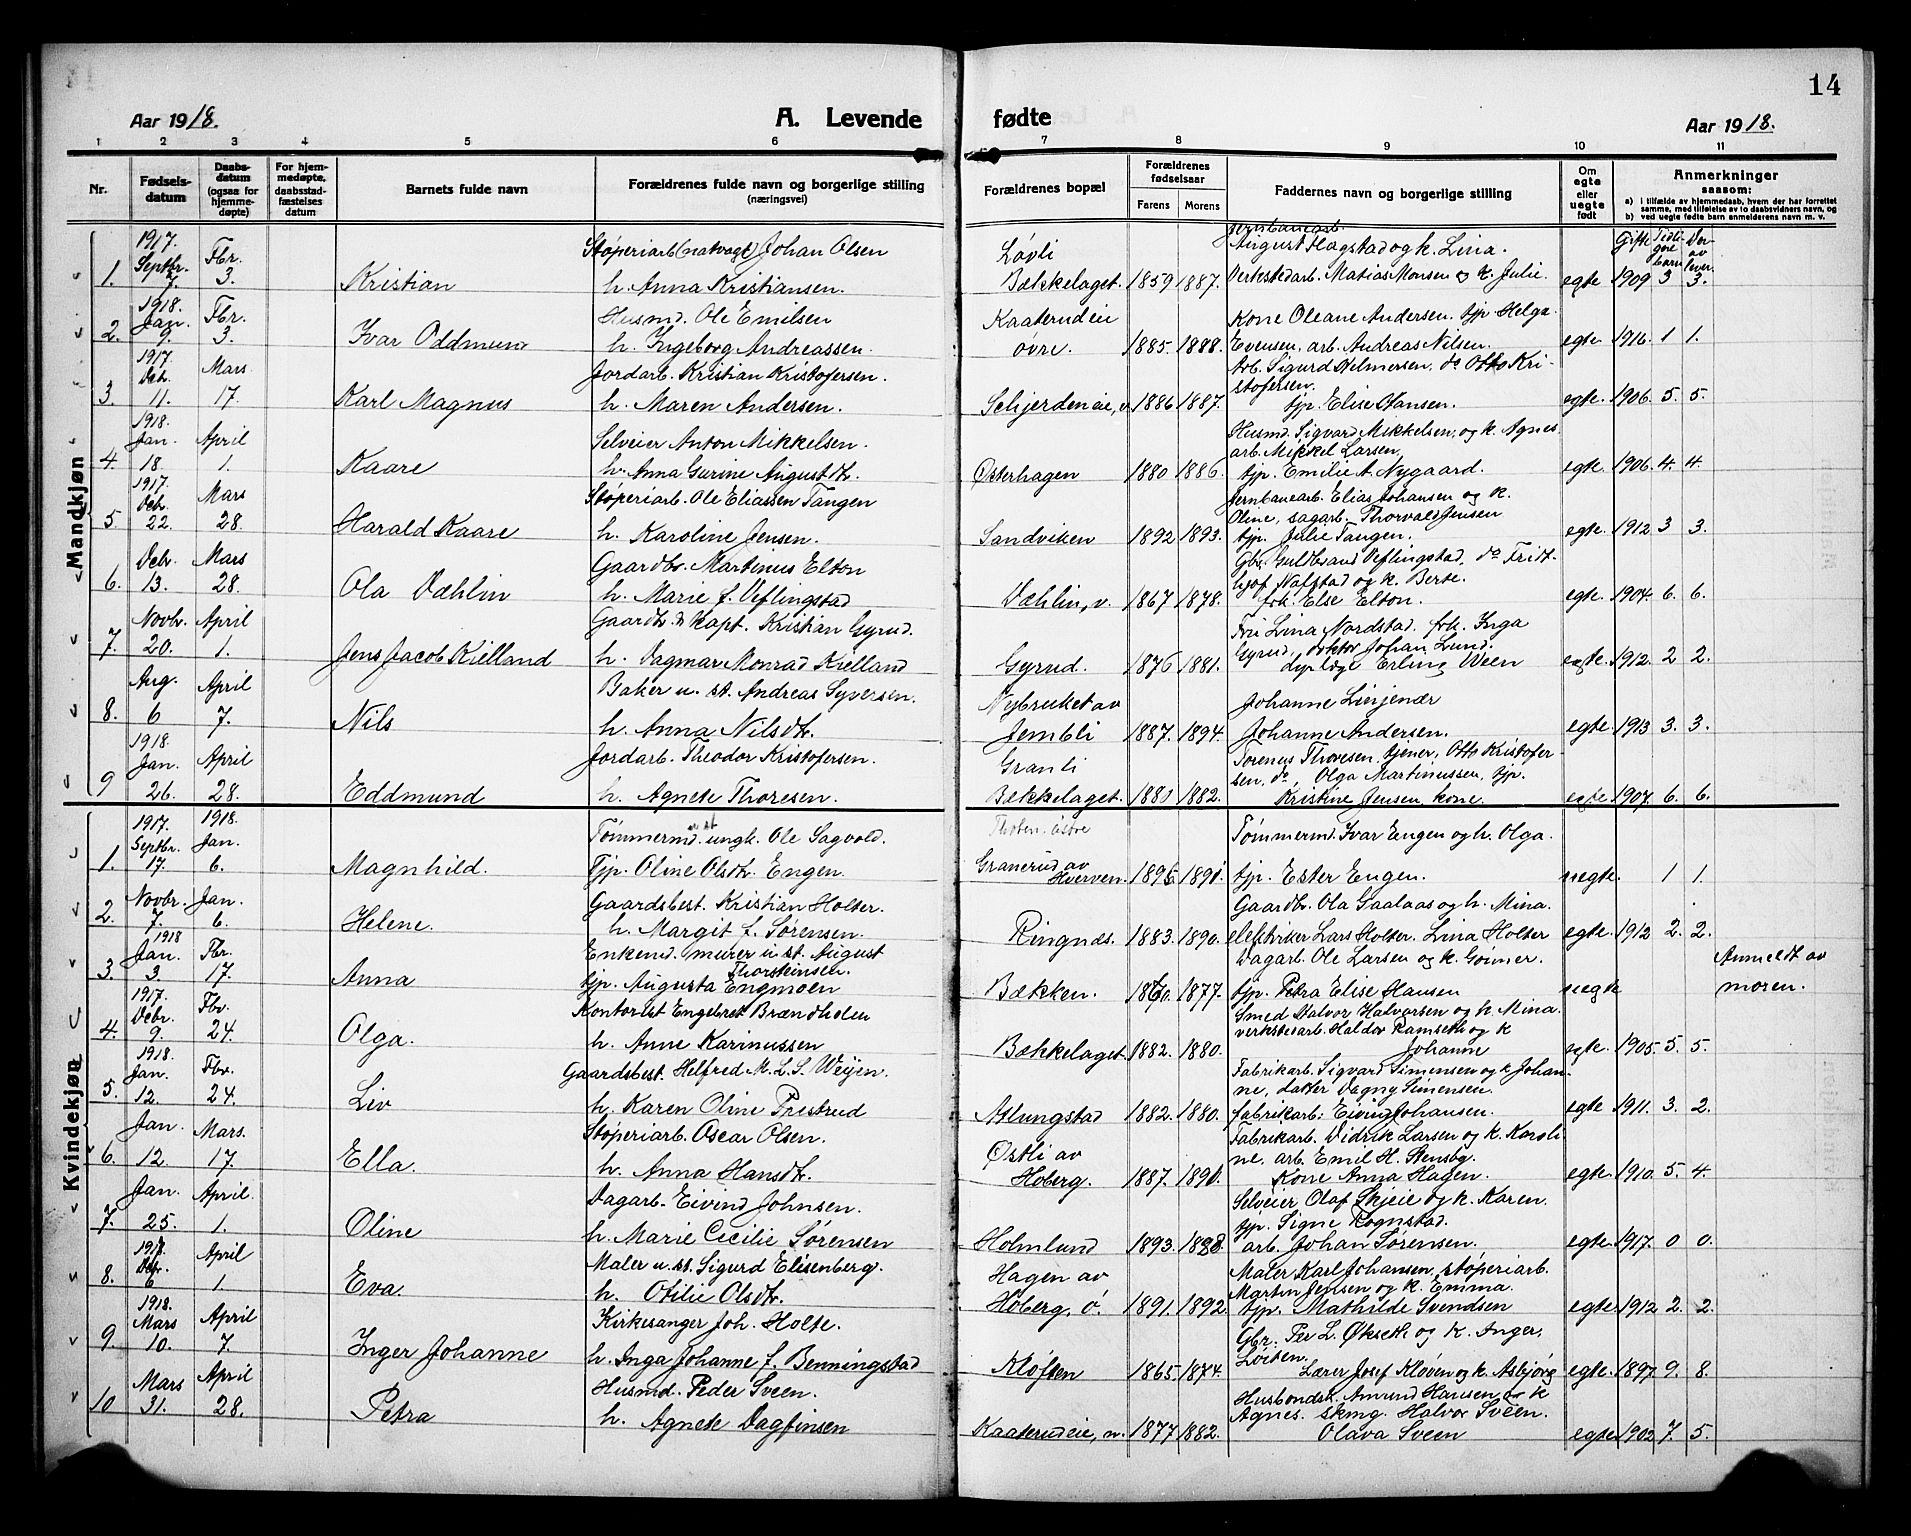 14
Aar 1918.
A. Levende
fødte
Aar 1918.
1 2 3 4 5 6 7 8 9 10 11
Nr.
Fødsels-
datum
Daabs-
datum
(ogsaa for
hjemme-
døpte)
For hjem-
medøpte,
daabsstad-
fæstelses
datum
Barnets fulde navn
Forældrenes fulde navn og borgerlige stilling
(næringsvei)
Forældrenes bopæl
Forældrenes
fødselsaar
Farens Morens
Faddernes navn og borgerlige stilling
Om
egte
eller
uegte
født
Anmerkninger
saasom:
a) i tilfælde av hjemmedaab, hvem der har forrettet
samme, med tilføielse av to daabsvidners navn, og
b) ved uegte fødte barn anmelderens navn m. v.
Gifte Tidligere barn Derav lever
Mandkjøn
1917. Septbr. Fbr. Støperiarb (natvagt) Johan Olsen Løvli Jernbanearb. August Hagstad og k. Lina.
1. 7. 3. Kristian h. Anna Kristiansen. Bækkelaget. 1859 1887. Verkstedarb. Matias Monsen og k. Julie. egte 1909 3 3.
1918. Jan. Fbr. Husmd. Ole Emilsen Kaaterudeie Kone Oleane Andersen. tjp Helga
2. 9. 3. Ivar Oddmund h. Ingeborg Andreassen. øvre. 1885. 1888. Evensen, arb. Andreas Nilsen. egte. 1916. 1 1.
1917 Debr. Mars Jordarb. Kristian Kristofersen. Arb. Sigurd Helmersen, do Otto Kri-
stofersen.
3. 11. 17. Karl Magnus h. Maren Andersen. Schjerdeneie, v. 1886 1887. tjp. Elise Hansen. egte. 1906. 5. 5.
1918. Jan. April Selveier Anton Mikkelsen. Husmd. Sigvard Mikkelsen, og k. Agnes.
arb. Mikkel Larsen,
4. 18. 1. Kaare h. Anna Gurine Augustdtr. Østerhagen 1880 1886. tjp. Emilie A. Nygaard. egte. 1906. 4. 4.
1917. Debr. Mars Støperiarb. Ole Eliassen Tangen Jernbanearb. Elias Johansen og k.
Oline, sagarb. Thorvald Jensen
5. 22. 28. Harald Kaare h. Karoline Jensen. Sandviken 1892 1893. tjp. Julie Tangen. egte. 1912 3 3.
Debr. Mars Gaardbr. Martinus Elton Gbr. Guldbrand Veflingstad, do Fridt-
hjof Nalfstad og k. Berte.
6. 13. 28. Ola Dæhlin h. Marie f. Veflingstad Dæhlin, v. 1867 1878. frk. Else Elton. egte. 1904. 6. 6.
Novbr. April Gaardbr. kapt. Kristian Gyrud. Fru Lina Nordstad. frk. Inga
Gyrud, doktor Johan Lund.
7. 20. 1. Jens Jacob Kielland h. Dagmar Monrad Kielland Gyrud. 1876 1881. dyrlæge Erling Ween egte. 1912. 2 2.
Aug. April Baker u. st. Andreas Syversen. Nybruket av Johanne Linjenær
8. 6 7. Nils h. Anna Nilsdtr. Jembli 1887. 1894. Johanne Andersen. egte. 1913 3. 3.
1918. Jan. April Jordarb. Theodor Kristofersen. Granli Torenus Thoresen, tjener, Otto Kristofer-
sen, do, Olga Martinussen, tjp.
9 26. 28. Eddmund h. Agnete Thoresen. Bækkelaget. 1881 1882. Kristine Jensen, kone. egte. 1907. 6. 6.
Kvindekjøn
1917. Septbr. 1918. Jan. Tømmermd. ungk. Ole Sagvold. Tømmermd. Ivar Engen og h. Olga.
1. 17. 6. Magnhild. Tjp. Oline Olsdtr. Engen. Granerud av Hverven. 1896 1891. tjp. Ester Engen. uegte. 1 1.
Novbr. Jan. Gaardsbest. Kristian Holter. Gaardbr. Ola Saalaas og h. Mina.
2. 7. 6. Helene. h. Margit f. Sørensen. Ringnæs. 1883. 1890. elektriker Lars Holter. Lina Holter egte. 1912 2. 2.
1918 Jan. Fbr. Enkemd. murer u. st. August Thorsteinsen. Dagarb. Ole Larsen og k. Goiner. Anmeldt av
3. 3. 17. Anna tjp. Augusta Engmoen Bækken. 1860. 1877. tjp. Petra Elise Hansen uegte moren.
1917. Debr. Fbr. Kontorist Engebret Brændholen Smed Halvor Halvorsen og k Mina.
verksbearb. Haldor Ramseth og k
4. 9. 24. Olga. h. Anne Karinussen Bækkelaget. 1882. 1880. Johanne egte. 1905. 5. 5.
1918. Jan. Fbr. Gaardsbest. Helfred M. L. S. Weijen. Fabrikarb. Sigvard Simensen og k Johan-
ne, datter Dagny Simensen.
5. 12. 24. Liv h. Karen Oline Prestrud Atlungstad 1882. 1880. fabrikarb. Eivind Johansen. egte 1911. 3. 2.
Jan. Mars. Støperiarb. Oscar Olsen. Østli av Fabrikarb. Didrik Larsen og k. Karoli-
ne, arb. Emil H. Stensby.
6. 12. 17. Ella. h. Anna Hansdtr. Høberg. 1887. 1891. Kone Anna Hagen. egte. 1910. 5. 4.
Jan. April. Dagarb. Eivind Johnsen. Selveier Olaf Skjeie og k. Karen.
tjp. Signe Rognstad.
7. 25. 1. Oline h. Marie Cecilie Sørensen Holmlund 1893. arb. Johan Sørensen. egte. 1917. 0 0.
1917 Debr. April Maler u. st. Sigurd Elisenberg. Hagen av Maler Karl Johansen, støperiarb.
Martin Jensen og k. Emma.
8. 6 1. Eva. h. Otilie Olsdtr. Høberg, ö. 1891. 1892. tjp. Mathilde Svendsen egte. 1912. 2. 2.
1918. Mars April Kirkesanger Joh. Holte. Gbr. Per L. Økseth og k. Inger,
Løiten.
9. 10. 7. Inger Johanne h. Inga Johanne f. Benningstad Kløften 1865. 1874. Lærer Josef Kløven og k. Asbjørg egte. 1897. 9. 8.
Mars April Husmd. Peder Sveen. Husbondsk. Amund Hansen og k
Agnes. skmg. Halvor Sveen.
10 31. 28. Petra h. Agnete Dagfinsen Kaaterudeie, n. 1877 1882. Olava Sveen egte. 1902 7. 5.